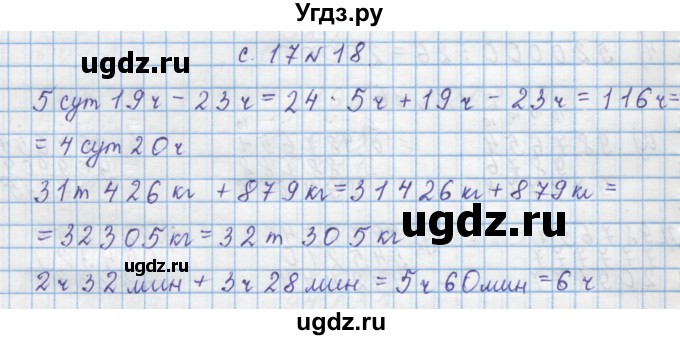 Угдз.ру
с. 17 № 18.
ugdz.ru
5 сут 19 ч - 23 ч = 24 · 5 ч + 19 ч - 23 ч = 116 ч =
= 4 сут 20 ч
ugdz.ru
31 т 426 кг + 879 кг = 31426 кг + 879 кг =
= 32305 кг = 32 т 305 кг
ugdz.ru
ugdz.ru
2 ч 32 мин + 3 ч 28 мин = 5 ч 60 мин = 6 ч
ugdz.ru